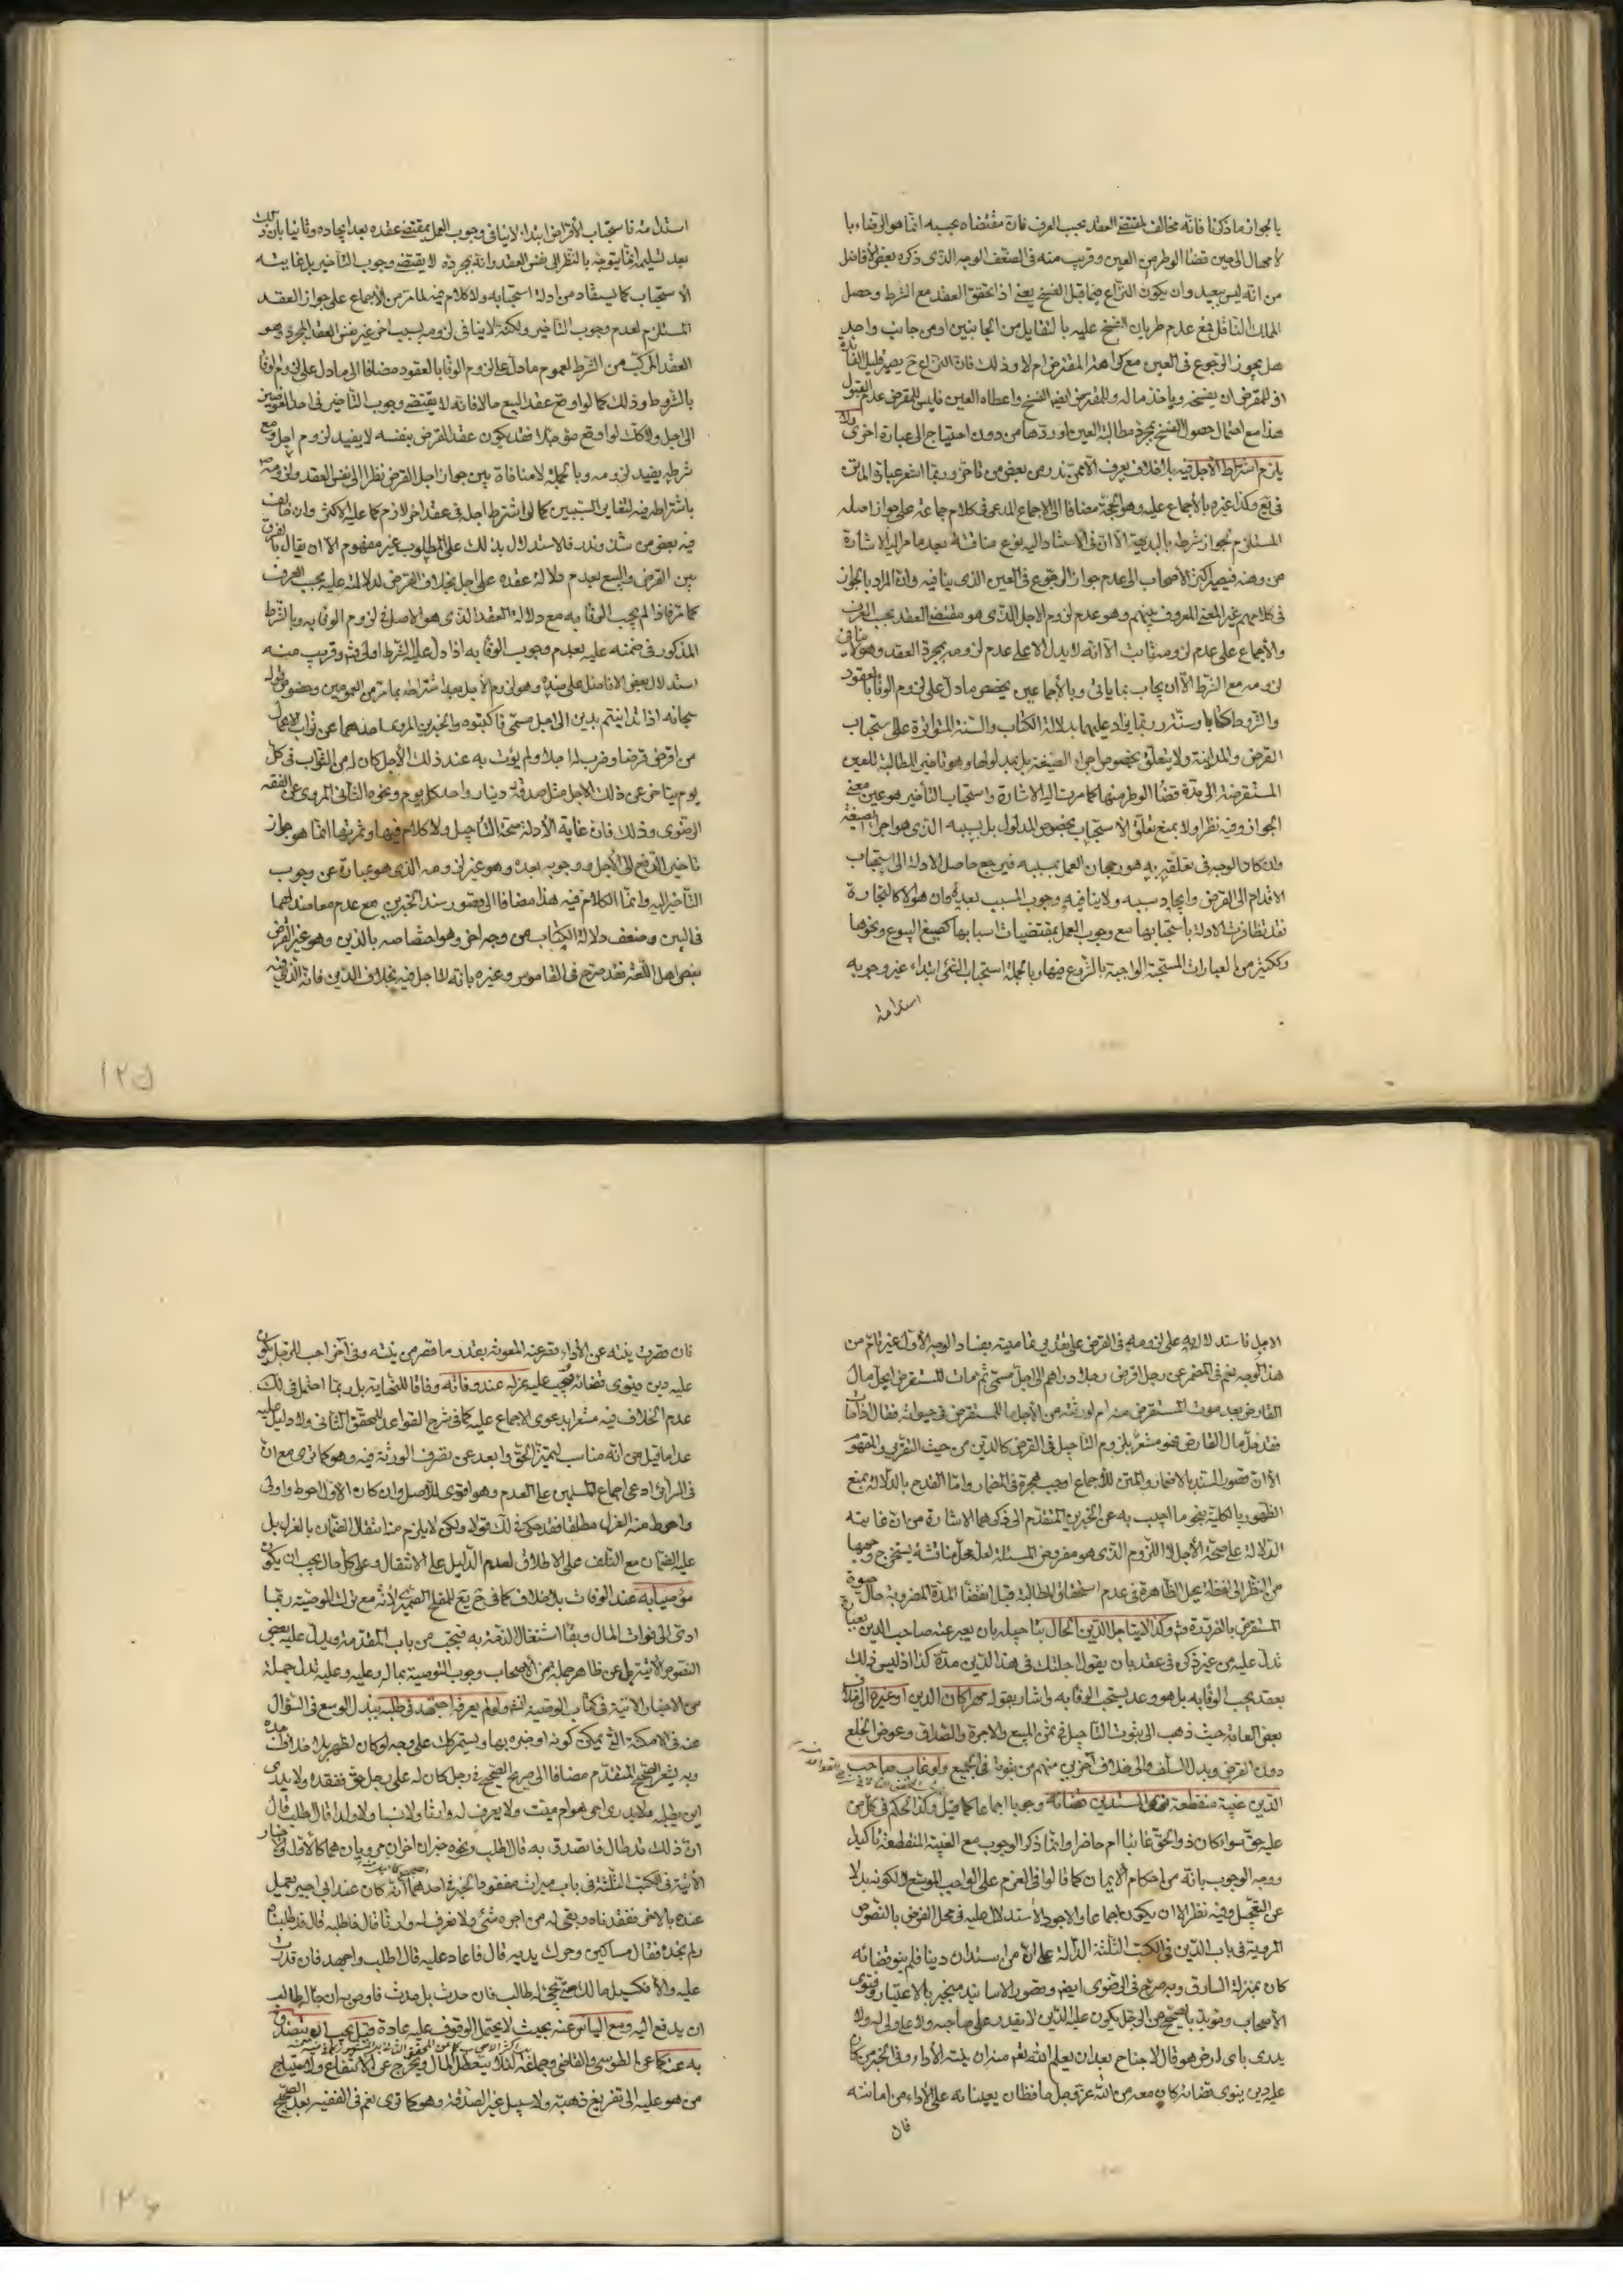 بالجواز ما ذكرنا فانه مخالف لمقتضى العقد بحسب العرف فان مقتضاه بحسبه انما هو الرضاء با
لامهال الى حين قضاء الوطر من العين وقريب منه فى الضعف الوجه الذى ذكره بعض الافاضل
من انه ليس ببعيد وان يكون النزاع فيما قبل الفسخ يعنى اذا تحقق العقد مع الشرط وحصل
الملك الناقل فمع عدم طريان الفسخ عليه بالتقايل من الجانبين او من جانب واحد
هل يجوز الرجوع فى العين مع كراهة المقترض ام لا وذلك فان النزاع ح يصير قليل الفائدة
اذ للمقرض ان يفسخه وياخذ ماله وللمقترض ايضا الفسخ واعطاه العين فليس للمقرض عدم القبول
هذا مع احتمال حصول الفسخ بمجرد مطالبة العين او ردها من دون احتياج الى عبارة اخرى ولا
يلزم اشتراط الاجل فيه بلا خلاف يعرف الا ممن ندر من بعض من تاخر وربما اشعر عبارة الماتن
فى يع وكذا غيره بالاجماع عليه وهو الحجة مضافا الى الاجماع المدعى فى كلام جماعة على جواز اصله
المستلزم لجواز شرطه بالبديهة الا ان فى الاستناد اليه نوع مناقشة بعد ما مر اليه الاشارة
من وهنه فيصير اكثر الاصحاب الى عدم جواز الرجوع فى العين الذى ينافيه وان المراد بالجواز
فى كلامهم غير المعنى المعروف بينهم وهو عدم لزوم الاجل الذى هو مقتضى العقد بحسب العرف
والاجماع على عدم لزومه ثابت الا انه لا يدل الا على عدم لزومه بمجرد العقد وهو لا ينافى
لزومه مع الشرط الا ان يجاب بما ياتى وبالاجماعين يخصص ما دل على لزوم الوفاء بالعقود
والشروط كتابا وسنة وربما يزاد عليهما بدلالة الكتاب والسنة المتواترة على استحباب
القرض والمداينة ولا يتعلق بخصوص اجراء الصيغة بل بمدلولها وهو تاخير المطالبة للعين
المستقرضة الى مدة قضاء الوطر منها كما مرت اليه الاشارة واستحباب التاخير هو عين معنى
الجواز وفيه نظر اولا بمنع تعلق الاستحباب بخصوص المدلول بل بسببه الذى هو اجراء الصيغة
ولا كلام الوجه فى تعلقه به هو رجحان العمل بمسببه فيرجع حاصل الادلة الى استحباب
الاقدام الى القرض وايجاد سببه ولا ينافيه وجوب المسبب بعده وان هو الا كالتجارة
فقد تظافرت الادلة باستحبابها مع وجوب العمل بمقتضيات اسبابها كصيغ البيوع ونحوها
وككثير من العبارات المستحبة الواجبة بالشروع فيها وبالجملة استحباب الشئ ابتداء غير وجوبه
استدامة
استدامة فاستحباب الاقراض ابتداء لا ينافى وجوب العمل بمقتضى عقده بعد ايجاده وثانيا بان ذلك
بعد تسليمه انما يتوجه بالنظر الى نفس العقد وانه بمجرده لا يقتضى وجوب التاخير بل غايته
الاستحباب كما يستفاد من ادلة استحبابه ولا كلام فيه لما مر من الاجماع على جواز العقد
المستلزم لعدم وجوب التاخير ولكنه لا ينافى لزومه بسبب اخر غير نفس العقد المجرد وهو
العقد المركب من الشرط لعموم ما دل على لزوم الوفاء بالعقود مضافا الى ما دل على لزوم الوفاء
بالشروط وذلك كما لو اوقع عقد البيع حالا فانه لا يقتضى وجوب التاخير فى احد العوضين
الى اجل ولا كك لو اوقع مؤجلا فقد يكون عقد القرض بنفسه لا يفيد لزوم اجل ومع
شرطه يفيد لزومه وبالجملة لا منافاة بين جواز اجل القرض نظرا الى نفس العقد ولزومه
باشتراطه فيه لتغاير السببين كما لو اشترط اجله فى عقد اخر لازم كما عليه الاكثر وان خالف
فيه بعض من شذ وندر فالاستدلال بذلك على المطلوب غير مفهوم الا ان يقال بالفرق
بين القرض والبيع بعدم دلالة عقده على اجل بخلاف القرض لدلالته عليه بحسب العرف
كما مر فاذا لم يجب الوفاء به مع دلالة العقد الذى هو الاصل فى لزوم الوفاء به وبالشرط
المذكور فى ضمنه عليه فعدم وجوب الوفاء به اذا دل عليه الشرط اولى فت وقريب منه
استدلال بعض الافاضل على ضده وهو لزوم الاجل بعد اشتراطه بما مر من العمومين وخصوص قوله
سبحانه اذا تداينتم بدين الى اجل مسمى فاكتبوه والخبرين المروى احدهما عن ثواب الاعمال
من اقرض قرضا وضرب له اجلا ولم يؤت به عند ذلك الاجل كان له من الثواب فى كل
يوم يتاخر عن ذلك الاجل مثل صدقة دينار واحد كل يوم ونحوه الثانى المروى عن الفقه
الرضوى وذلك فان غاية الادلة صحة التاجيل ولا كلام فيها وثمرتها انما هو جواز
تاخير الدفع الى الاجل ووجوبه بعده وهو غير لزومه الذى هو عبارة عن وجوب
التاخير اليه وانما الكلام فيه هذا مضافا الى قصور سند الخبرين مع عدم معاضد لهما
فى البين وضعف دلالة الكتاب من وجه اخر وهو اختصاصه بالدين وهو غير القرض
بنص اهل اللغة فقد صرح فى القاموس وغيره بانه لا اجل فيه بخلاف الدين فانه الذى فيه
١٢٥
الاجل فاستدلاله به على لزومه فى القرض على تقدير تماميته بفساد الوجه الاول غير تام من
هذا الوجه نعم فى المضمر عن رجل اقرض رجلا دراهم الى اجل مسمى ثم مات المستقرض ايحل مال
القارض بعد موت المستقرض منه ام لورثته من الاجل ما للمستقرض فى حيوته فقال اذا مات
فقد حل مال القارض فهو مشعر بلزوم التاجيل فى القرض كالدين من حيث التقرير والمفهوم
الا ان قصور السند بالاضمار والمتن للاجماع اوجب هجره فى المضمار واما القدح بالدلالة بمنع
الظهور بالكلية بنحو ما اجيب به عن الخبرين المتقدم الى ذكرهما الاشارة من ان غايته
الدلالة على صحة الاجل لا اللزوم الذى هو مفروض المسئلة لعله محل مناقشة يستخرج وجهها
من النظر الى لفظة يحل الظاهرة فى عدم استحقاق المطالبة قبل انقضاء المدة المضروبة حال حيوة
المستقرض بالضرورة فت وكذا لا يتاجل الدين الحال بتاجيله بان يعبر عنه صاحب الدين بعبارة
تدل عليه من غير ذكره فى عقد بان يقول اجلتك فى هذا الدين مدة كذا اذ ليس ذلك
بعقد يجب الوفاء به بل هو وعد يستحب الوفاء به واشار بقوله مهرا كان الدين او غيره الى خلاف
بعض العامة حيث ذهب الى ثبوت التاجيل فى ثمن المبيع والاجرة والصداق وعوض الخلع
دون القرض وبدل المتلف والى خلاف اخرين منهم من ثبوته فى الجميع ولو غاب صاحب
الدين غيبة منقطعة نوى المستدين قضائه وجوبا اجماعا كما قيل وكذا الحكم فى كل من
عليه حق سواء كان ذو الحق غائبا ام حاضرا وانما ذكر الوجوب مع الغيبة المنقطعة تاكيدا
ووجه الوجوب بانه من احكام الايمان كما قالوا فى العزم على الواجب الموسع ولكونه بدلا
عن التعجيل وفيه نظر الا ان يكون اجماعا والاجود الاستدلال عليه فى محل الفرض بالنصوص
المروية فى باب الدين فى الكتب الثلثة الدالة على ان من استدان دينا فلم ينو قضائه
كان بمنزلة السارق وبه صرح فى الرضوى ايض وقصور الاسانيد منجبر بالاعتبار وفتوى
الاصحاب ومؤيد بالصحيح عن الرجل يكون عليه الدين لا يقدر على صاحبه ولا على ولى له ولا
يدرى باى ارض هو قال لا جناح بعد ان يعلم الله تعم منه ان نيته الاداء وفى الخبر من كان
عليه دين ينوى قضائه كان معه من الله عز وجل حافظان يعينانه على الاداء من امانته
فان
فان قصرت نيته عن الاداء قصر عنه المعونة بقدر ما قصر من نيته وفى اخر احب للرجل يكون
عليه دين وينوى قضائه فيجب عليه عزله عند وفاته وفاقا للنهاية بل ربما احتمل فى لك
عدم الخلاف فيه مشعرا بدعوى الاجماع عليه كما فى شرح القواعد للمحقق الثانى ولا دليل عليه
عدا ما قيل من انه مناسب لتميز الحق وابعد عن تصرف الورثة فيه وهو كما ترى مع ان
فى السرائر ادعى اجماع المسلمين على العدم وهو اقوى للاصل وان كان الاول احوط واولى
واحوط منه العزل مطلقا فقد حكى فى لك قولا ولكن لا يلزم منه انتقال الضمان بالعزل بل
عليه الضمان مع التلف على الاطلاق لعدم الدليل على الانتقال وعلى كل حال يجب ان يكون
موصيا به عند الوفات بلا خلاف كما فى ح يع للمفلح الصيمرى لانه مع ترك الوصية ربما
ادى الى فوات المال وبقاء اشتغال الذمة به فيجب من باب المقدمة ويدل عليه بعض
النصوص الاتية بل عن ظاهر جملة من الاصحاب وجوب التوصية بماله وعليه وعليه تدل جملة
من الاخبار الاتية فى كتاب الوصية انش ولو لم يعرفه اجتهد فى طلبه ببذل الوسع فى السؤال
عنه فى الامكنة التى يمكن كونه او خبره بها ويستمر كك على وجه لو كان لظهر بلا خلاف اجده
وبه يشعر الصحيح المتقدم مضافا الى صريح الصحيح فى رجل كان له على رجل حق ففقده ولا يدرى
اين يطلبه ولا يدرى احى هو ام ميت ولا يعرف له وارثا ولا نسبا ولا ولدا قال اطلب قال
ان ذلك قد طال فاتصدق به قال اطلب ونحوه خبران اخران مرويان هما كالاول
الاتية فى الكتب الثلثة فى باب ميراث المفقود والخبر فى احدهما انه كان عند ابى اجير يعمل
عنده بالاجر ففقدناه وبقى له من اجره شئ ولا نعرف له وارثا قال فاطلبه قال قد طلبناه
ولم نجده فقال مساكين وحرك يديه قال فاعاد عليه قال اطلب واجهد فان قدرت
عليه والا فكسبيل مالك حتى يجئ له طالب فان حدث بك حدث فاوص به ان جاء له طالب
ان يدفع اليه ومع الياس عنه بحيث لا يحتمل الوقوف عليه عادة قيل يجب ان يتصدق
به عنه كما عن الطوسى والقاضى وجماعة لئلا يتعطل المال ويخرج عن الانتفاع ولاحتياج
من هو عليه الى تفريغ ذمته ولا سبيل غير الصدقة وهو كما ترى نعم فى الفقيه بعد الصحيح
١٢٦